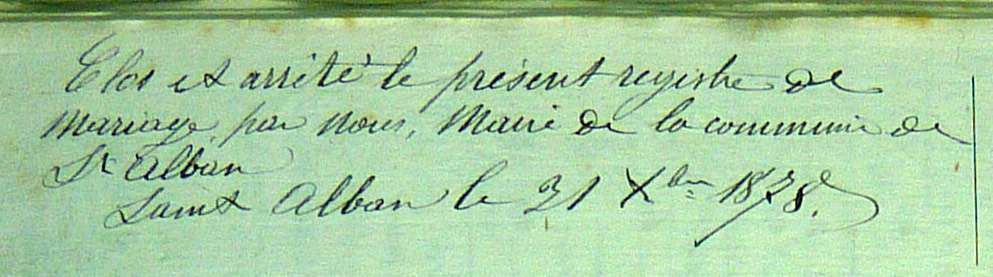 Clos et arrêté le présent registre de
Mariage, par nous, Maire de la commune de
St Alban
Saint Alban le 31 Xbre 1878.